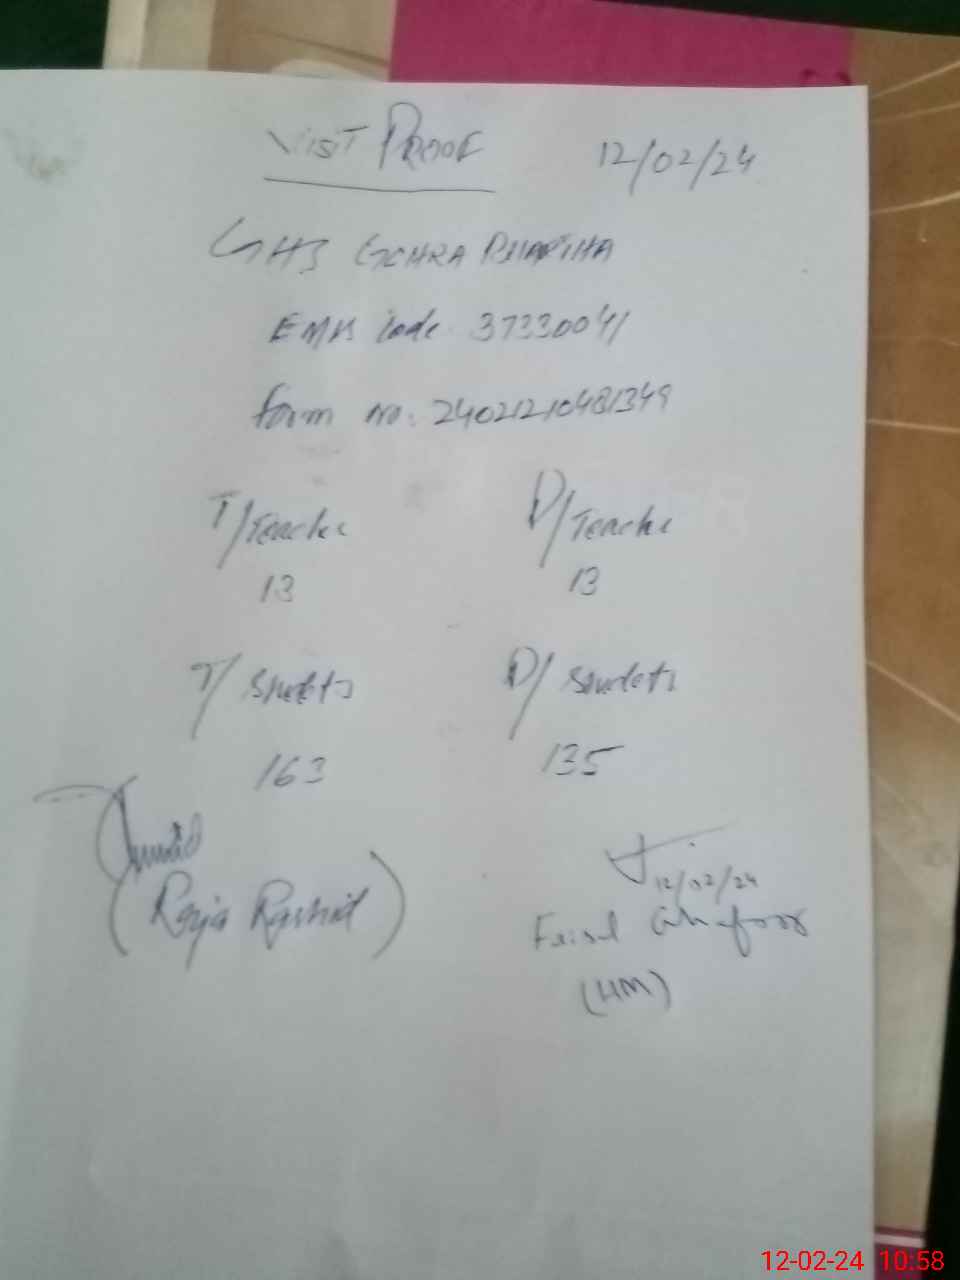 VISIT PROOF 12/02/24
GHS GOHRA
EMIS code 37330041
form no: 24021210481349
T/Teache P/Teache
13 13
T/Studets P/Studets
163 135
(Raja Rashid) 12/02/24
Faisal Ghafoor
(HM)
12-02-24 10:58